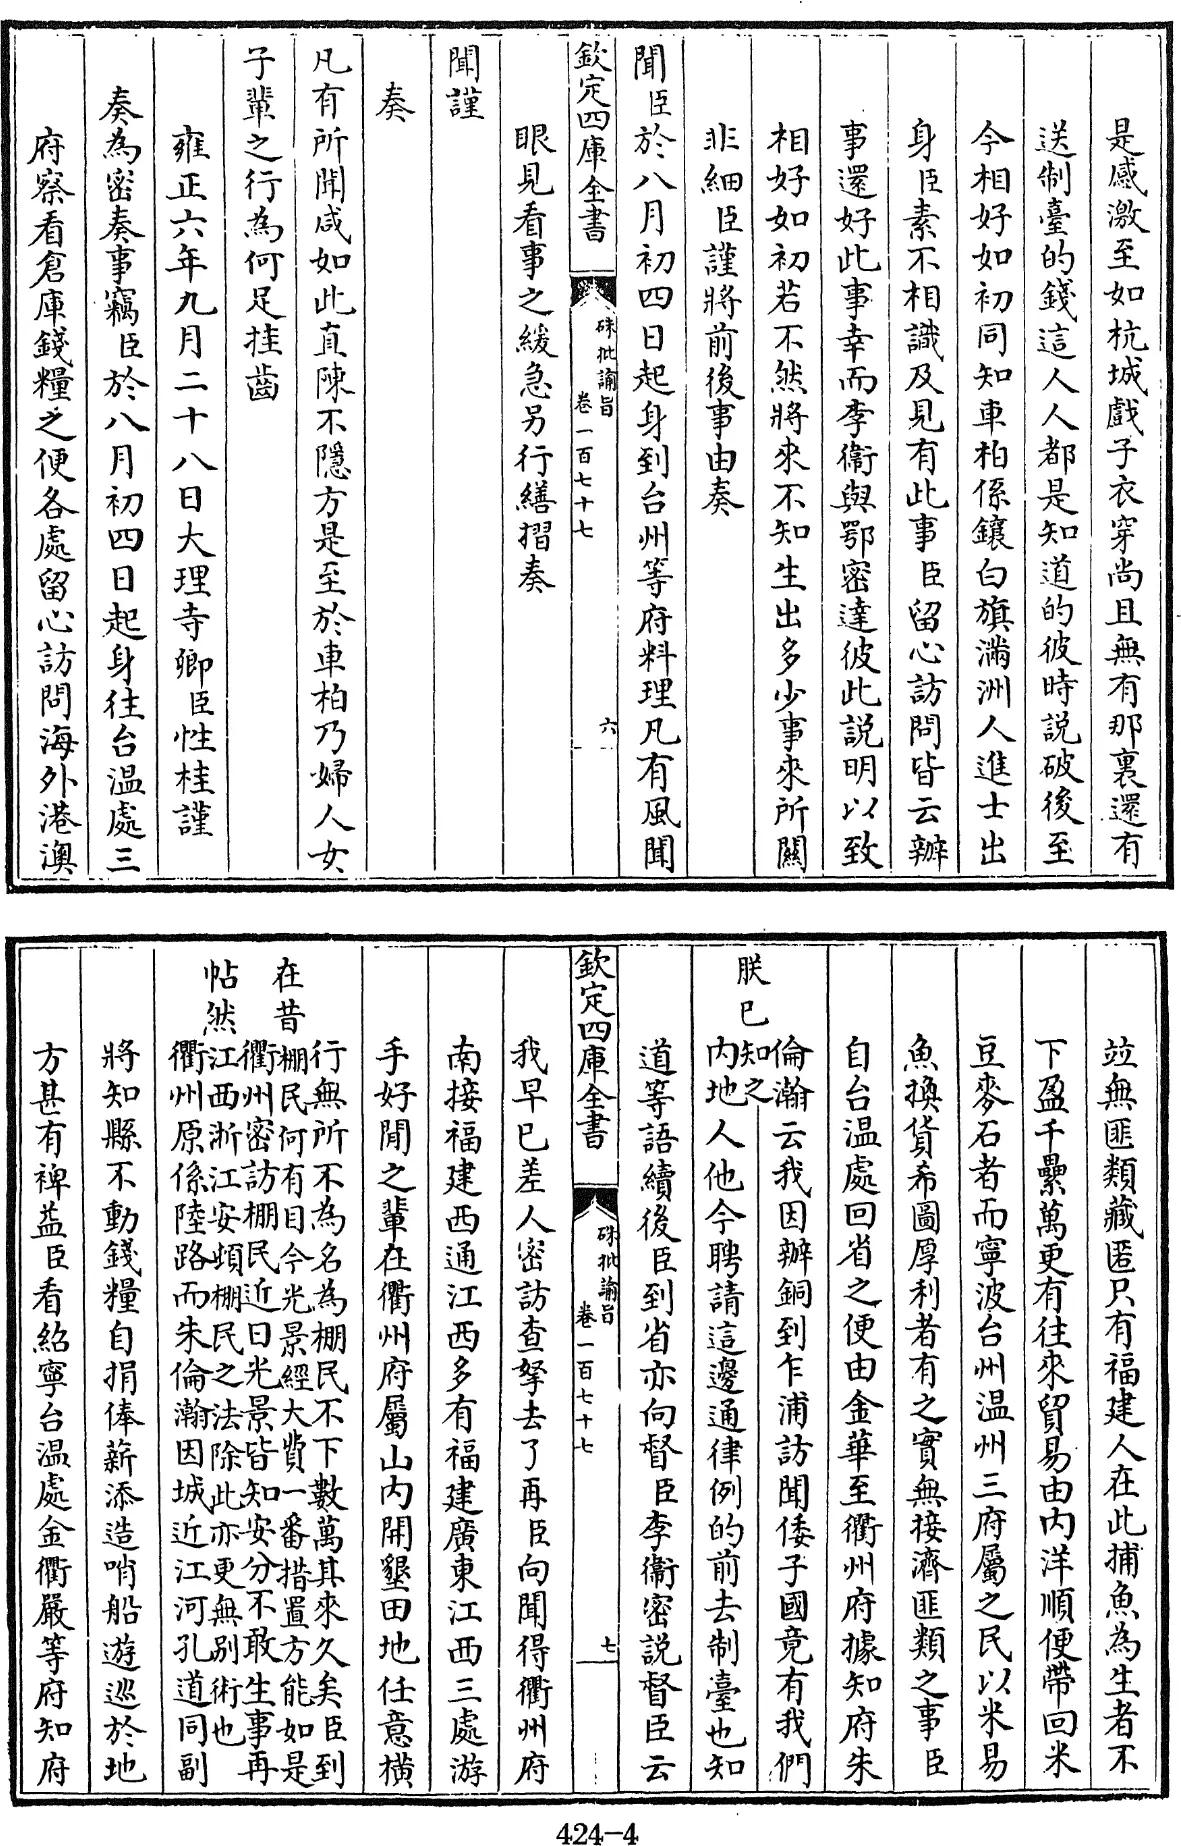 是感激至如杭城戲子衣穿尚且無有那裏還有
送制臺的錢這人人都是知道的彼時説破後至
今相好如初同知車柏係鑲白旗滿洲人進士出
身臣素不相識及見有此事臣留心訪問皆云辦
事還好此事幸而李衞與鄂密達彼此説明以致
相好如初若不然將來不知生出多少事來所關
非細臣謹將前後事由奏
聞臣於八月初四日起身到台州等府料理凡有風聞
欽定四庫全書
硃批諭旨
卷一百七十七
六
眼見看事之緩急另行繕摺奏
聞謹
奏
凡有所聞咸如此直陳不隱方是至於車柏乃婦人女
子輩之行為何足挂齒
雍正六年九月二十八日大理寺卿臣性桂謹
奏為密奏事竊臣於八月初四日起身往台温處三
府察看倉庫錢糧之便各處留心訪問海外港澳
竝無匪類藏匿只有福建人在此捕魚為生者不
下盈千纍萬更有往來貿易由内洋順便帶回米
豆麥石者而寧波台州温州三府屬之民以米易
魚換貨希圖厚利者有之實無接濟匪類之事臣
自台温處回省之便由金華至衢州府據知府朱
倫瀚云我因辦銅到乍浦訪聞倭子國竟有我們
朕已知之
内地人他今聘請這邊通律例的前去制臺也知
道等語續後臣到省亦向督臣李衞密説督臣云
欽定四庫全書
硃批諭旨
卷一百七十七
七
我早已差人密訪查拏去了再臣向聞得衢州府
南接福建西通江西多有福建廣東江西三處游
手好閒之輩在衢州府屬山内開墾田地任意橫
行無所不為名為棚民不下數萬其來久矣臣到
在昔棚民何有目今光景經大費一番措置方能如是
衢州密訪棚民近日光景皆知安分不敢生事再
帖然江西浙江安頓棚民之法除此亦更無别術也
衢州原係陸路而朱倫瀚因城近江河孔道同副
將知縣不動錢糧自捐俸薪添造哨船遊巡於地
方甚有裨益臣看紹寧台温處金衢嚴等府知府
424-4